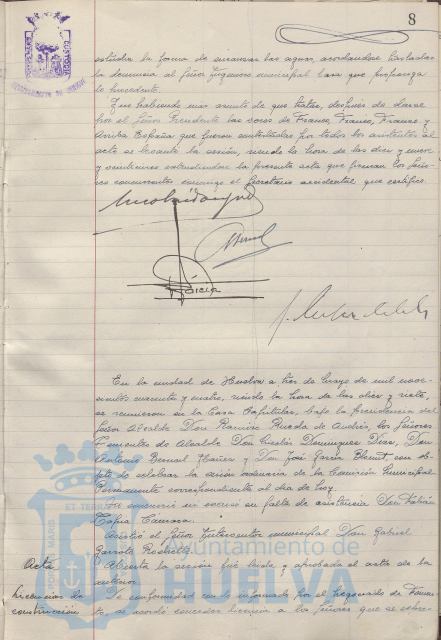 8
estudie la forma de encauzar las aguas, acordándose trasladar
la denuncia al Señor Ingeniero municipal para que proponga
lo procedente.
Y no habiendo más asunto de que tratar, después de darse
por el Señor Presidente las voces de Franco, Franco, Franco y
Arriba España que fueron contestadas por todos los asistentes al
acto se levantó la sesión, siendo la hora de las diez y nueve
y veinticinco extendiéndose la presente acta que firman los Seño-
res concurrentes conmigo el Secretario accidental que certifico.
García
En la ciudad de Huelva a tres de Mayo de mil nove-
cientos cuarenta y cuatro, siendo la hora de las diez y siete,
se reunieron en la Casa Capitular, bajo la presidencia del
Señor Alcalde Don Ramiro Rueda de Andrés, los Señores
Tenientes de Alcalde Don Nicolás Domínguez Díaz, Don
Antonio Bernal y Don José García con ob-
jeto de celebrar la sesión ordinaria de la Comisión Municipal
Permanente correspondiente al día de hoy.
No concurrió ni excusó su falta de asistencia Don Fabián
Tapia Cámara.
Asistió el Señor Interventor municipal Don Gabriel
Garrote
Acta Abierta la sesión fué leída y aprobada el acta de la
anterior.
Licencias de De conformidad con lo informado por el Negociado de Fomen-
construcción. to se acordó conceder licencia a los señores que se
Ayuntamiento de
HUELVA